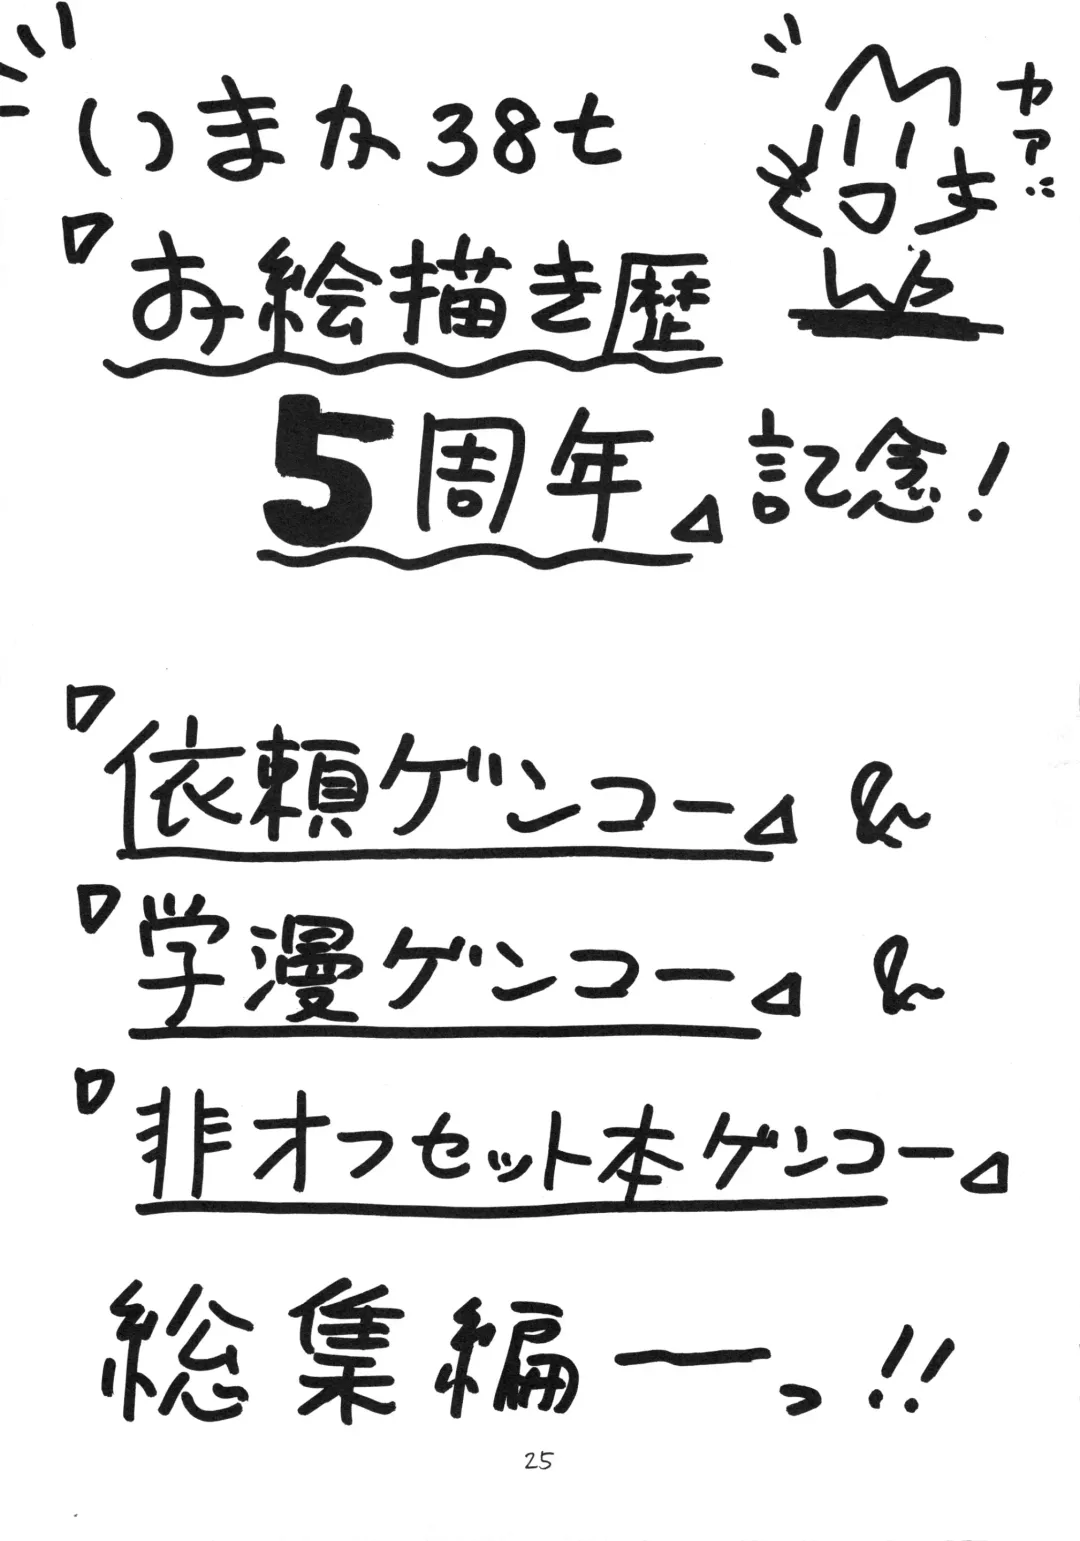 いまか38t
カァ゛
『お絵描き歴
5周年』記念!
『依頼ゲンコー』&
『学漫ゲンコー』&
『非オフセット本ゲンコー』
総集編ーっ!!
25